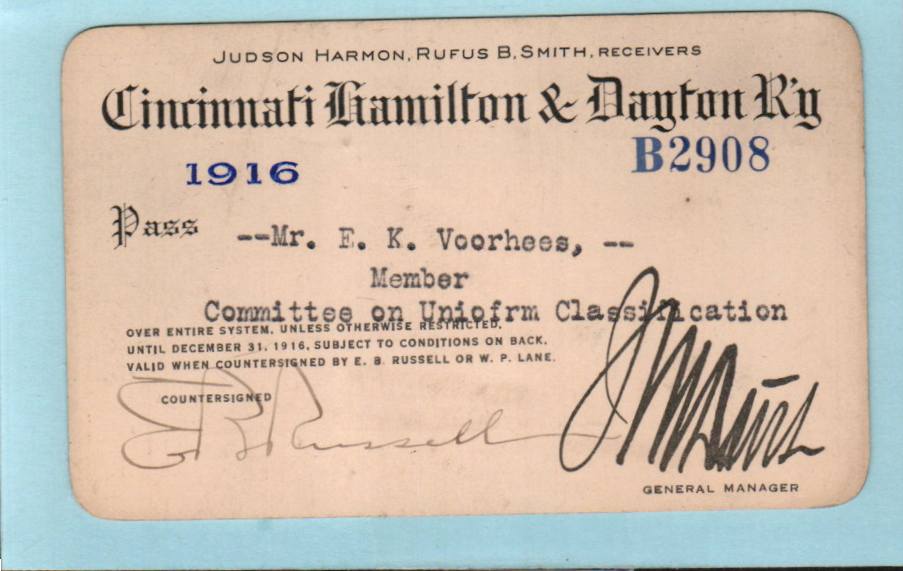 JUDSON HARMON, RUFUS B. SMITH, RECEIVERS
Cincinnati Hamilton & Dayton R'y
1916
B2908
Pass --Mr. E. K. Voorhees, --
Member
Committee on Uniofrm Classification
OVER ENTIRE SYSTEM, UNLESS OTHERWISE RESTRICTED,
UNTIL DECEMBER 31, 1916, SUBJECT TO CONDITIONS ON BACK.
VALID WHEN COUNTERSIGNED BY E. B. RUSSELL OR W. P. LANE.
COUNTERSIGNED
E B Russell
GENERAL MANAGER